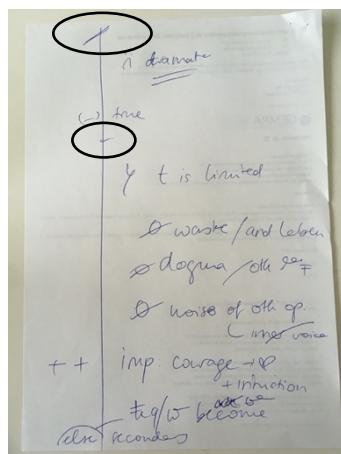 ∩ dramatic
(–) true
–
ϟ t is limited
Ø waste / and leben
Ø dogma / oth
Ø noise of oth op.
inner voice
++ imp. courage → ♡
+ intuition
become
else secondary